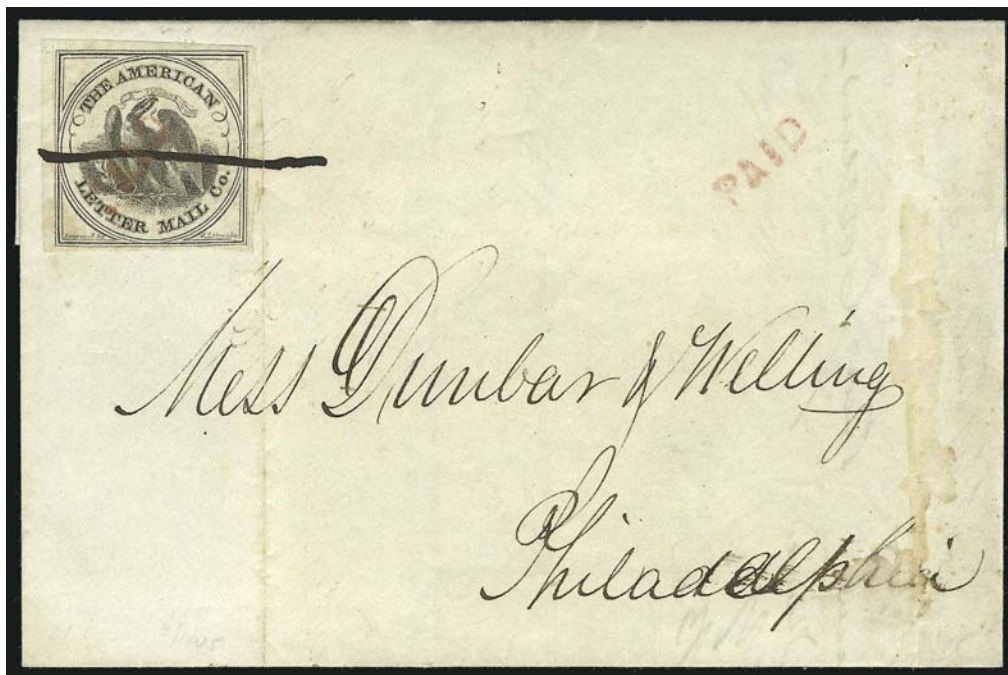 THE AMERICAN
LETTER MAIL Co.
PAID
Mess Dunbar & Welling
Philadelphia